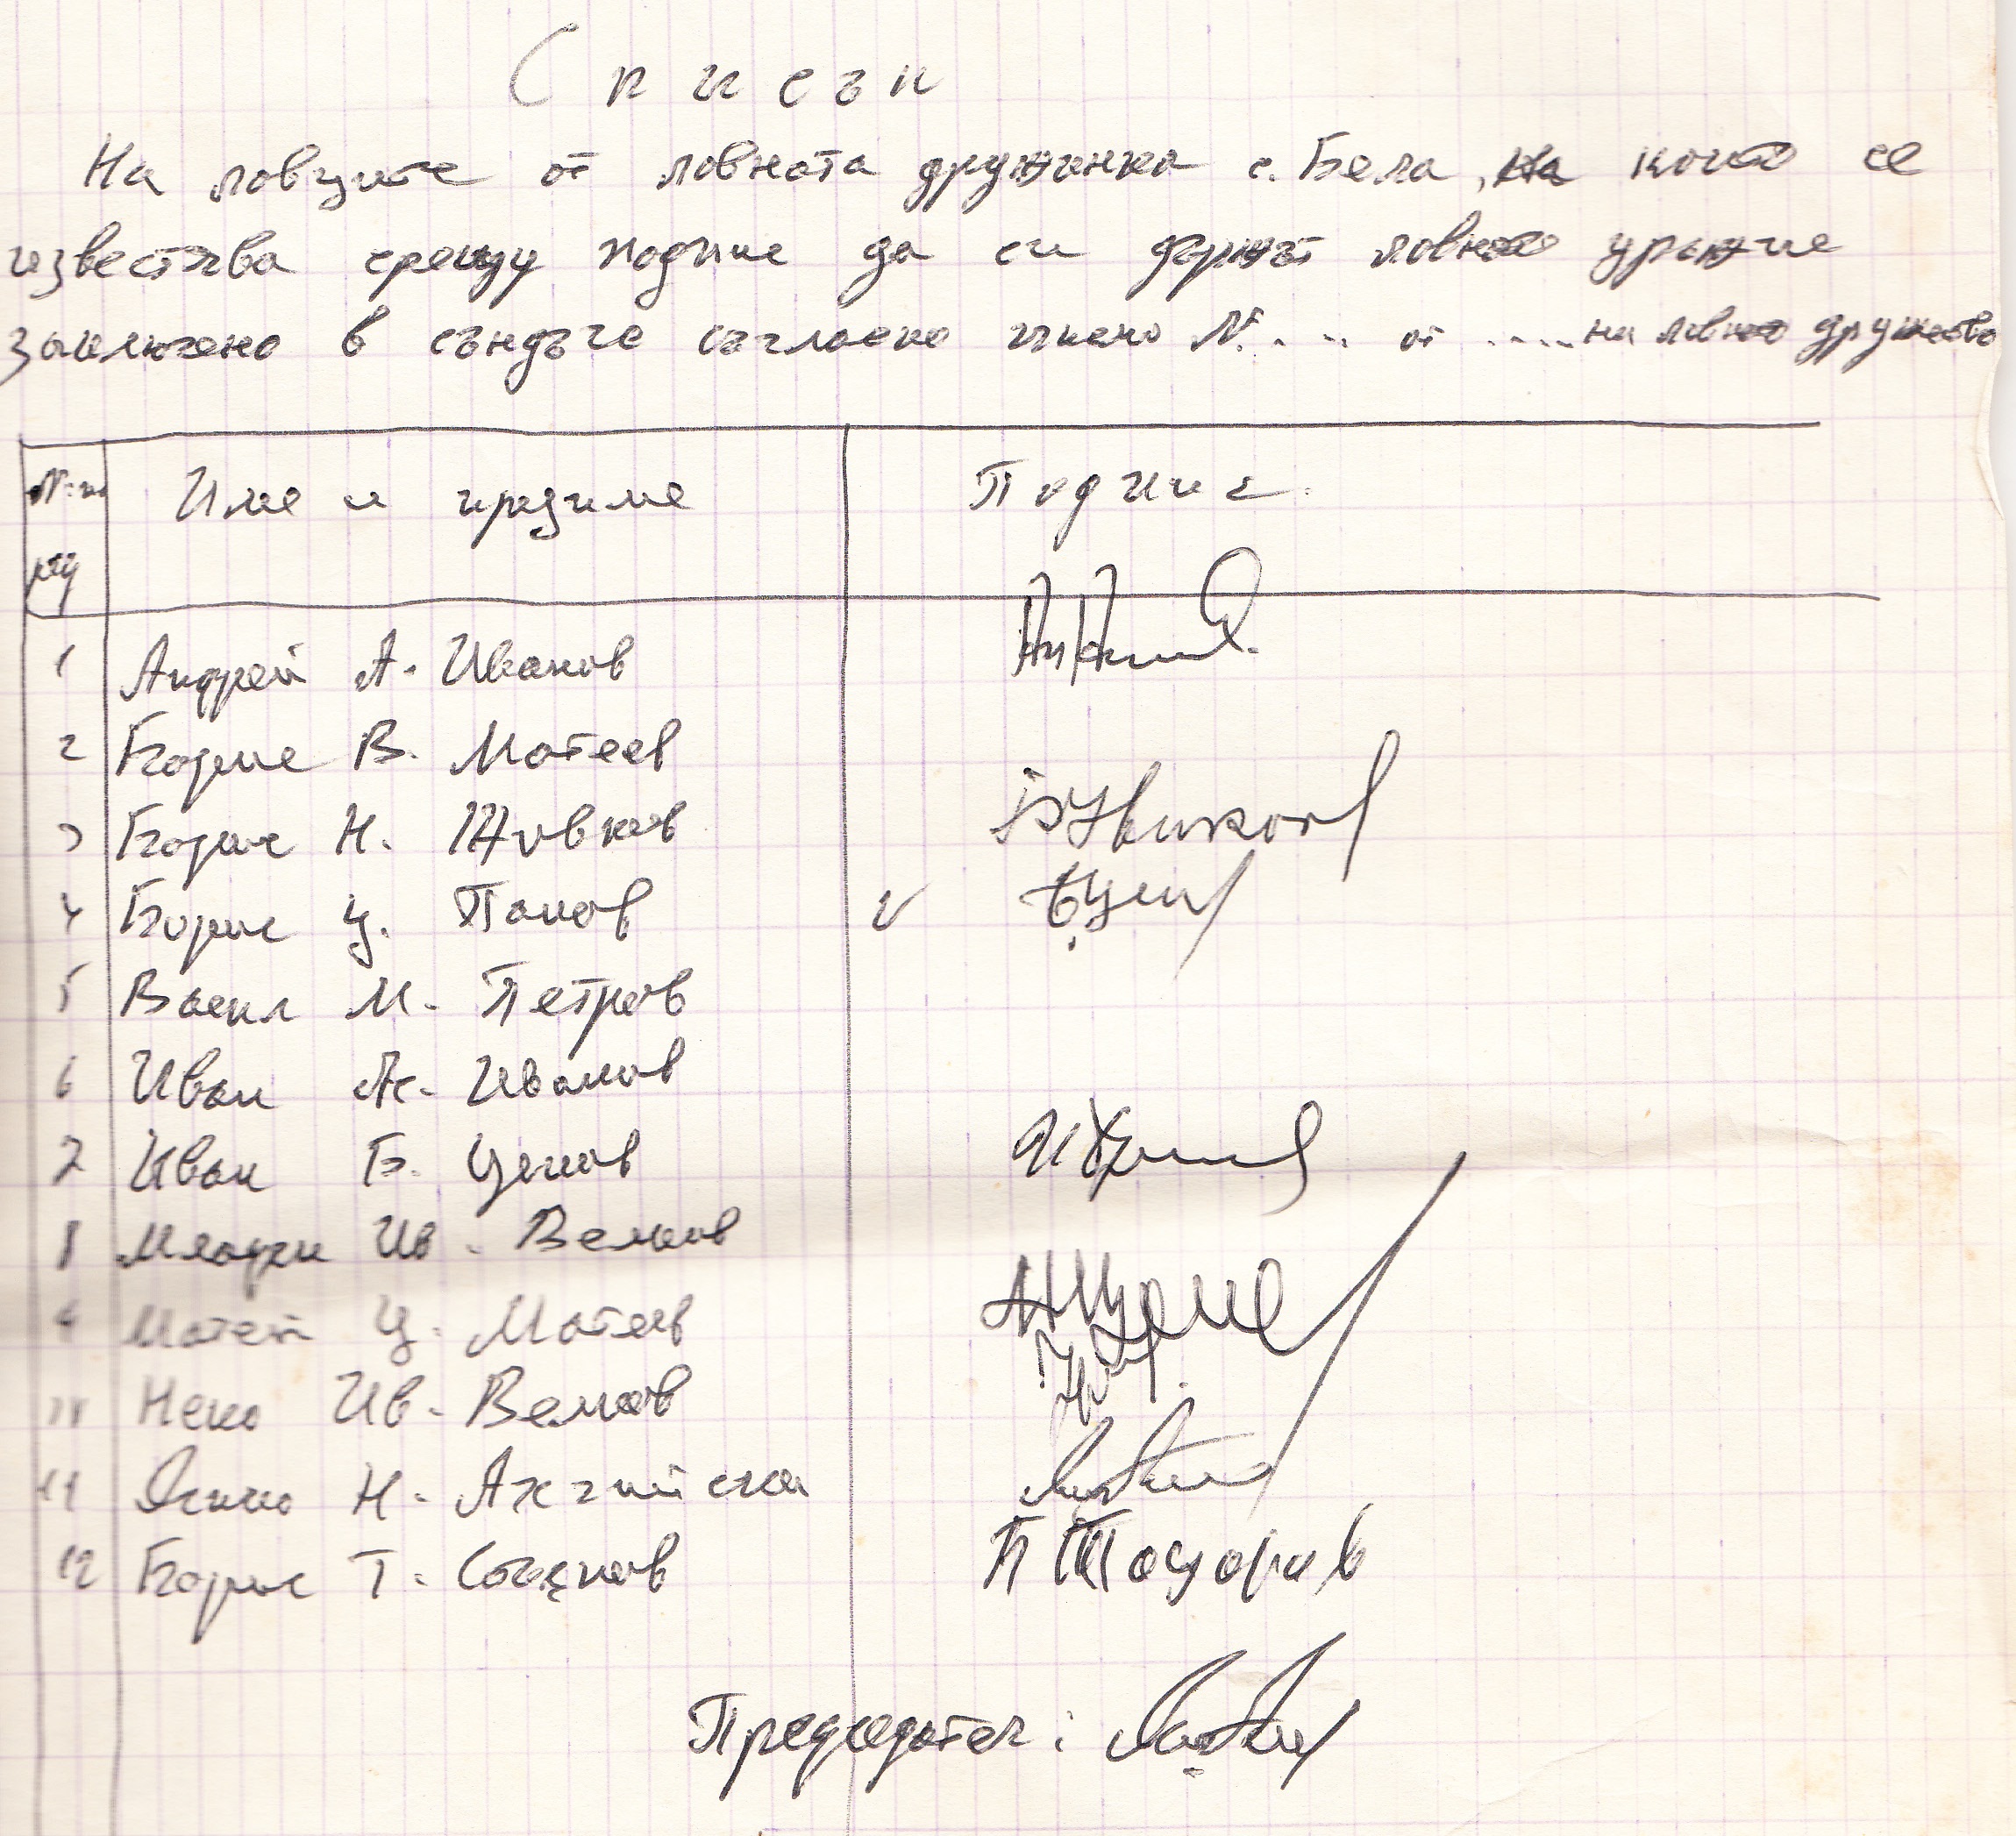 Списък
На ловците от ловната дружинка с. Бела, на които се
известява срещу подпис да си държат ловното уръжие
заключено в сандъче съгласно писмо №.... от ..... на ловното дружество
№ по Име и презиме Подпис.
ред
1 Андрей А. Иванов
2 Борис В. Матеев
3 Борис Н. Живков
4 Борис Ц. Панов V
5 Васил М. Петров
6 Иван Ас. Иванов
7 Иван Б. Ценов
8 Младен Ив. Велков
9 Матей Ц. Матеев
10 Неко Ив. Велков
11 Н.
12 Борис Т. П Тодоров
Председател: